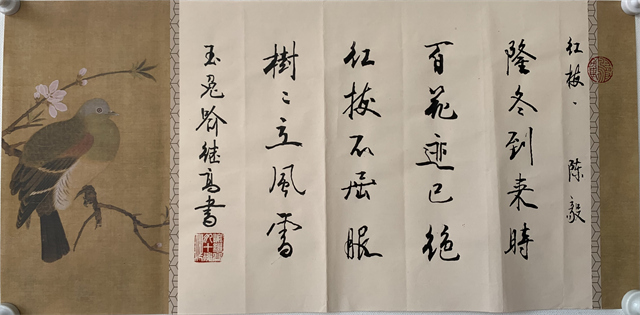 红梅、 陈毅
隆冬到来時
百花迹已绝
红梅不屈服
樹〻立風雪
玉兔喻继高書